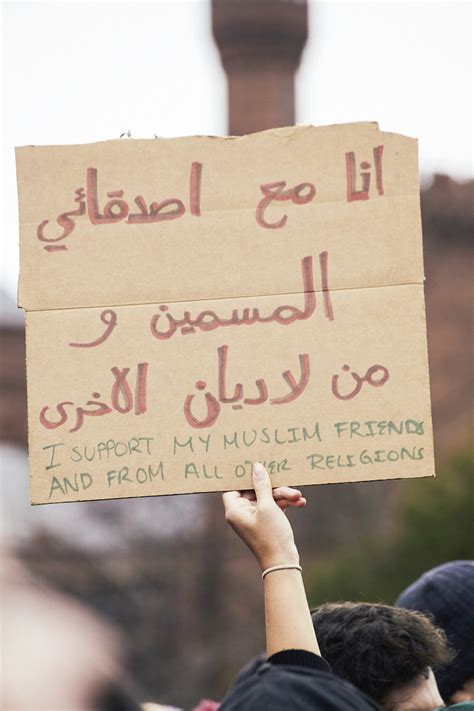 انا مع اصدقائي
المسمين و
من لاديان الاخرى
I SUPPORT MY MUSLIM FRIENDS
AND FROM ALL OTHER RELIGIONS